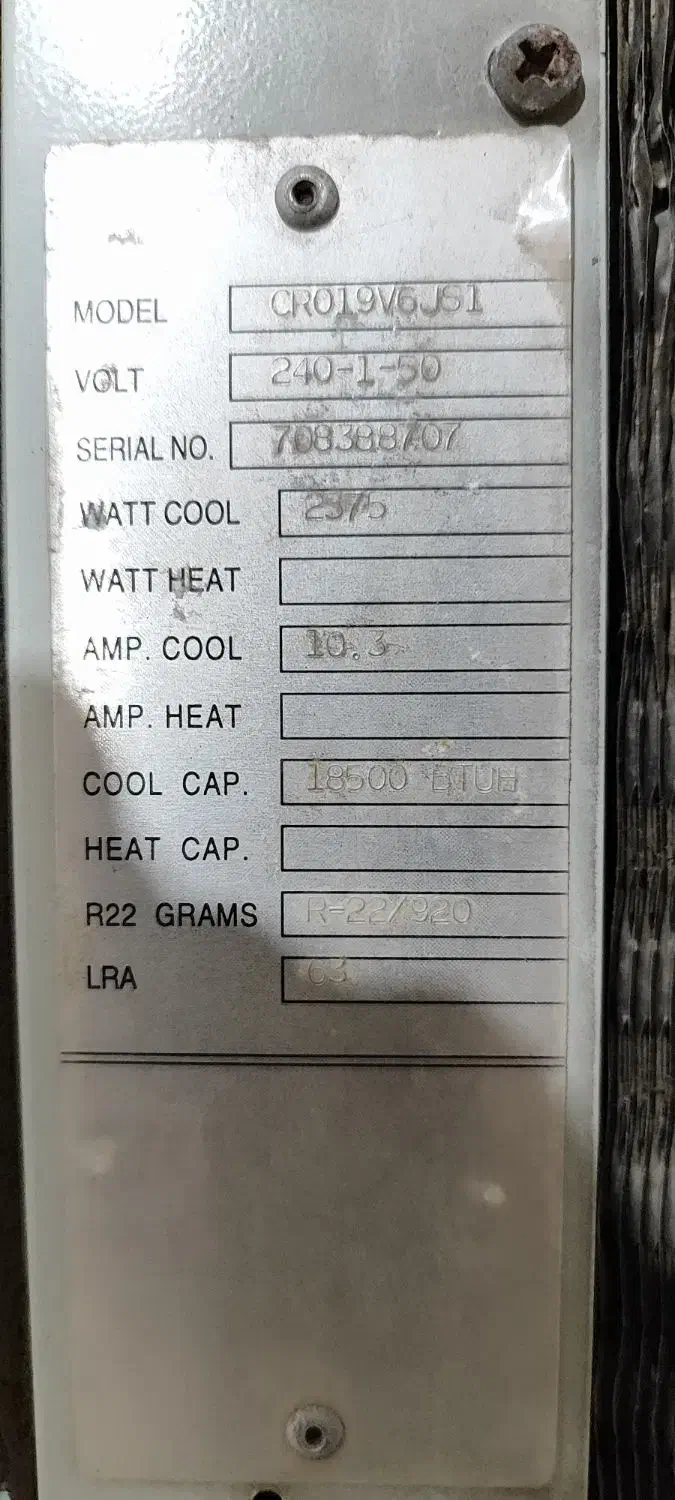 MODEL CR019V6JS1
VOLT 240-1-50
SERIAL NO. 708388707
WATT COOL 2375
WATT HEAT
AMP. COOL 10.3
AMP. HEAT
COOL CAP. 18500 BTUH
HEAT CAP.
R22 GRAMS R-22/920
LRA 63